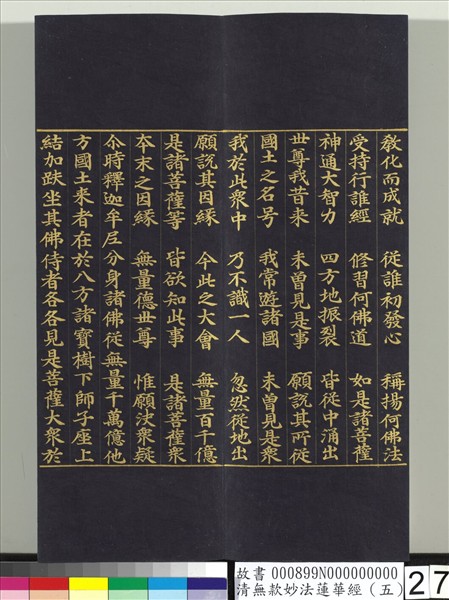 教化而成就　從誰初發心　稱揚何佛法
受持行誰經　修習何佛道　如是諸菩薩
神通大智力　四方地振裂　皆從中涌出
世尊我昔來　未曾見是事　願說其所從
國土之名号　我常遊諸國　未曾見是衆
我於此衆中　乃不識一人　忽然從地出
願說其因緣　今此之大會　無量百千億
是諸菩薩等　皆欲知此事　是諸菩薩衆
夲末之因緣　無量德世尊　惟願决衆疑
尒時釋迦牟尼分身諸佛從無量千萬億他
方國土来者在於八方諸寶樹下師子座上
結加趺坐其佛侍者各各見是菩薩大衆於
故書 000899N000000000
清無款妙法蓮華經（五）
27